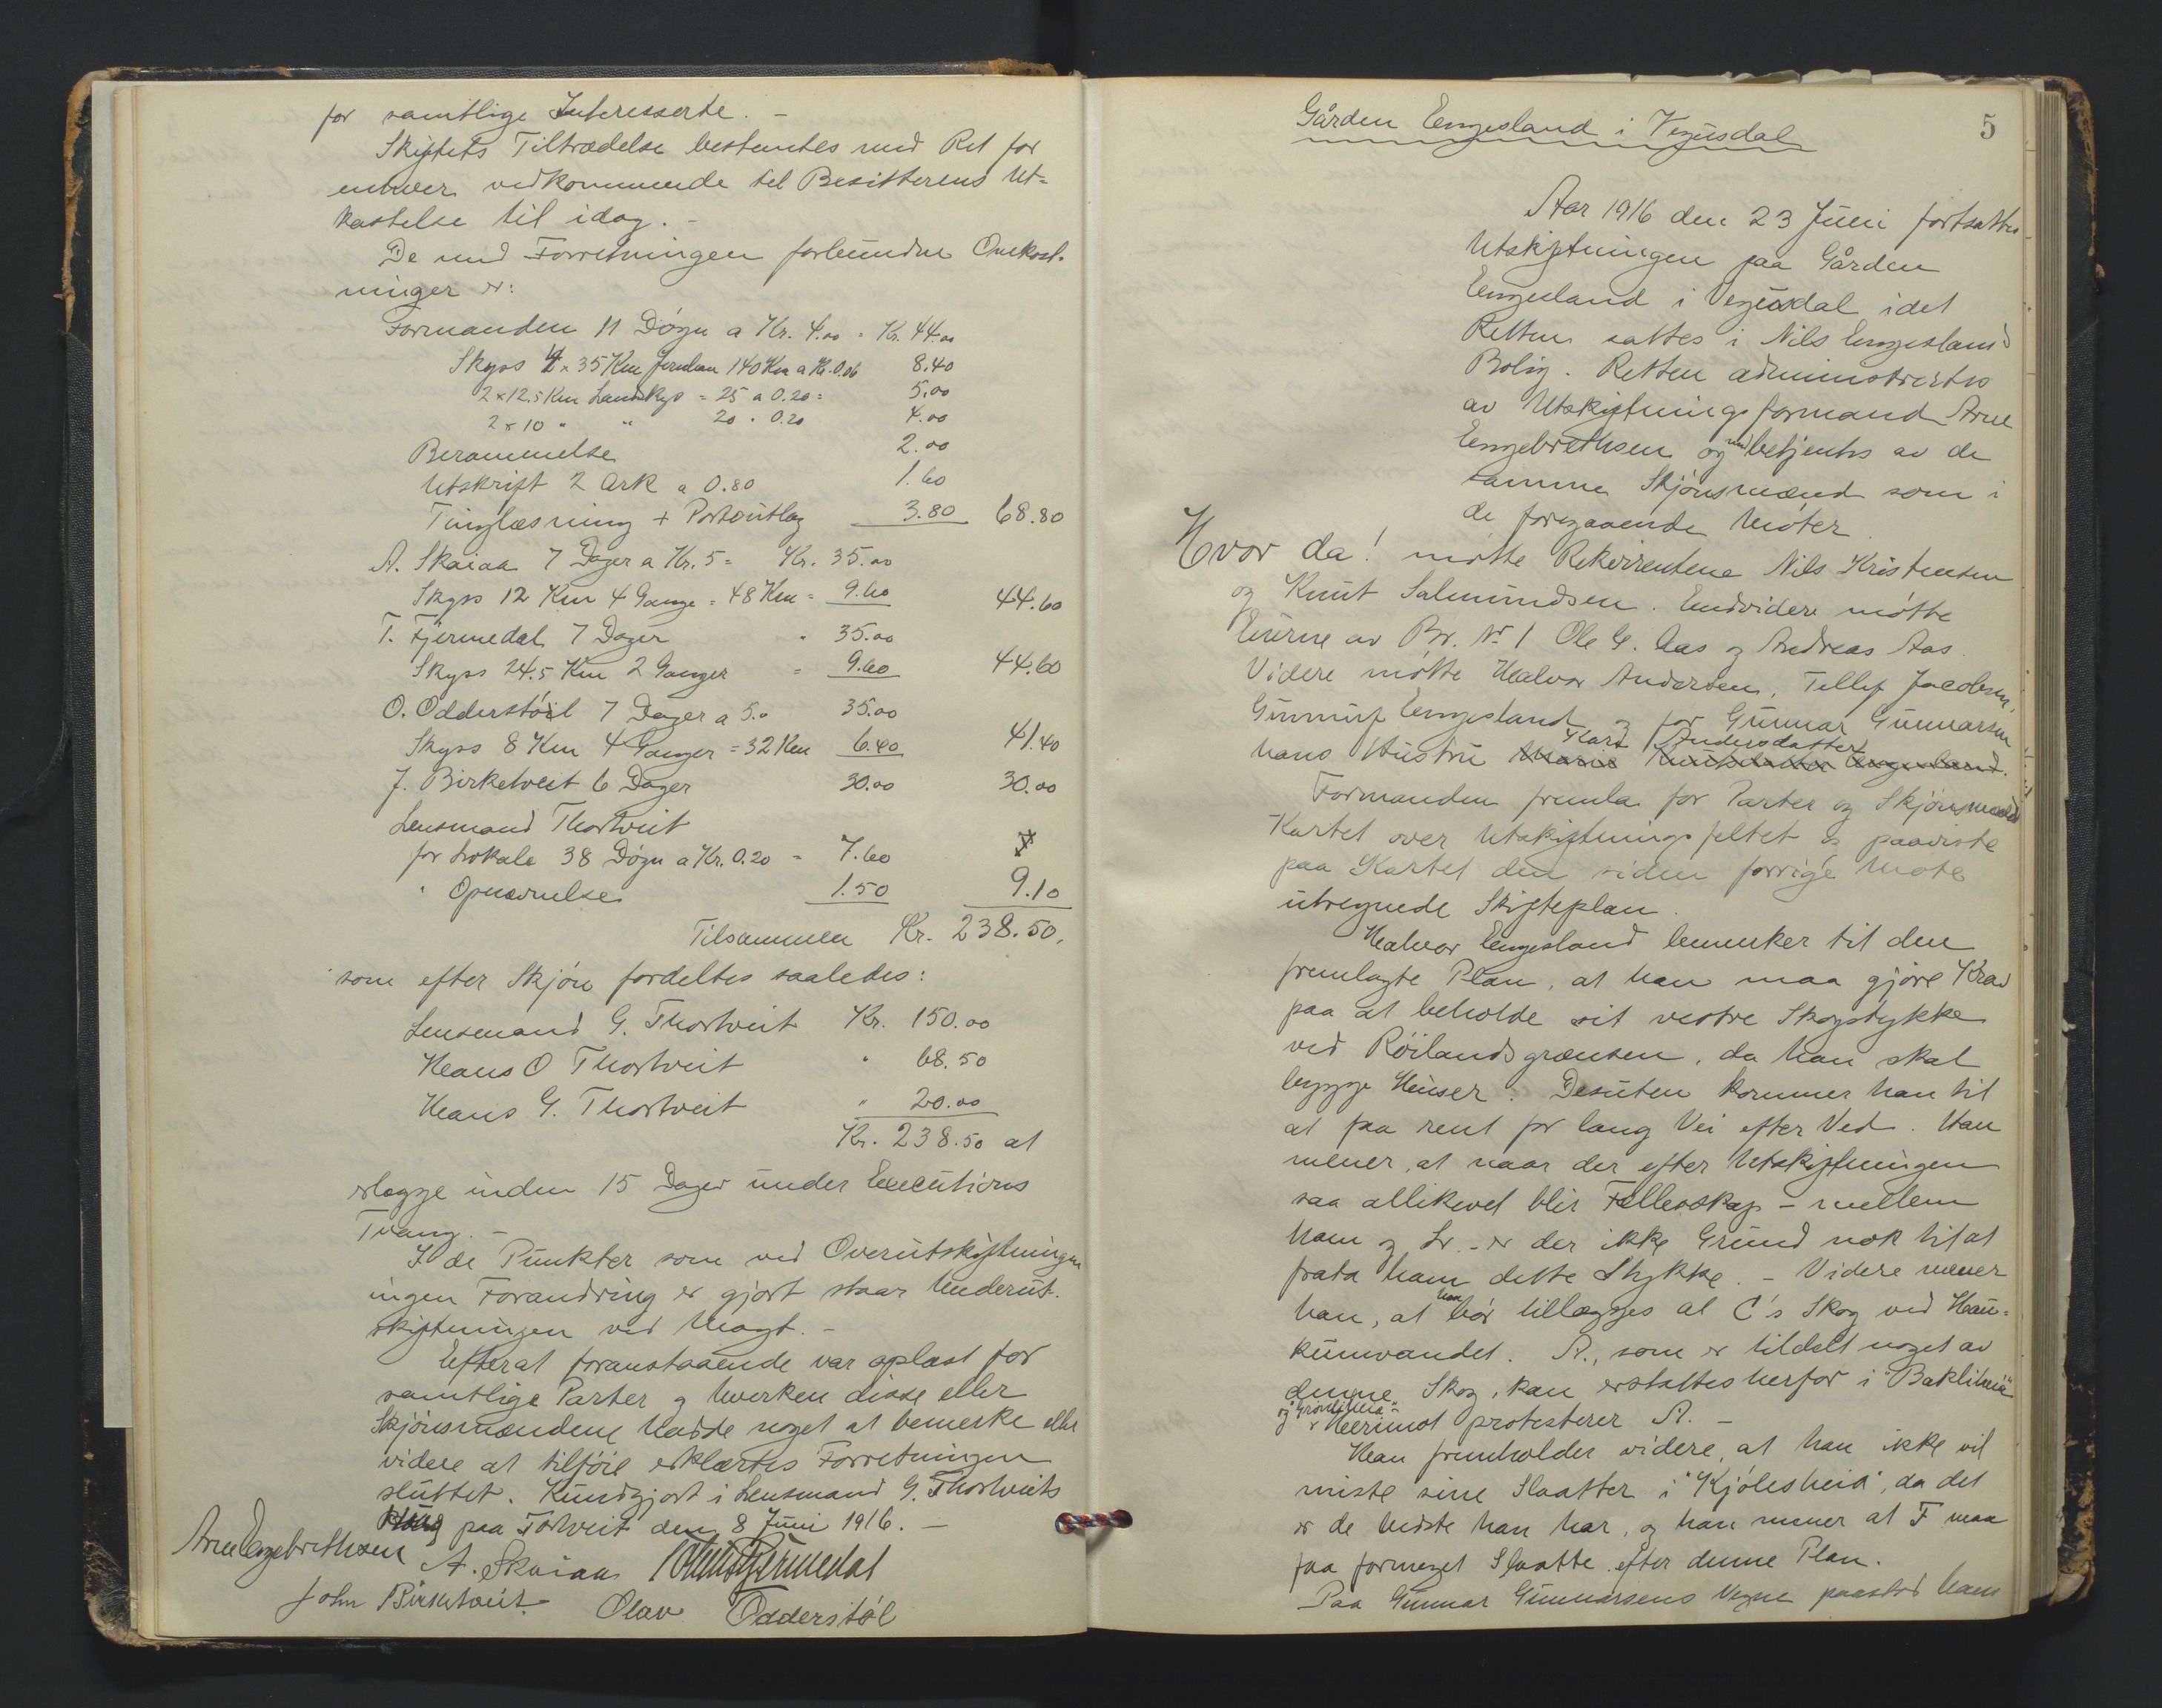 for samtlige Interesserte. -
Skiftets Tiltrædelse bestemtes med Ret for
enhver vedkommende til Besitterens Ut-
kastelse til idag. -
De med Forretningen forbundne Omkost-
ninger er:
Formanden 11 Døgn a Kr. 4.00 = Kr. 44.00
Skyss 4 x 35 Km Jernban 140 Km a Kr. 0.06 8.40
2 x 12.5 Km Landskys = 25 a 0.20 = 5.00
2 x 10 " " 20 " 0.20 4.00
Berammelse 2.00
Utskrift 2 Ark a 0.80 1.60
Tinglæsning + Portoutlæg 3.80 68.80
A. Skaiaa 7 Dager a Kr. 5 = Kr. 35.00
Skyss 12 Km 4 Gange = 48 Km = 9.60 44.60
T. Fjermedal 7 Dager " 35.00
Skyss 24.5 Km 2 Ganger = 9.60 44.60
O. Odderstøl 7 Dager a 5.0 35.00
Skyss 8 Km 4 Ganger = 32 Km 6.40 41.40
J. Birketveit 6 Dager 30.00 30.00
Lensmand Thortveit
for Lokale 38 Døgn a Kr. 0.20 = 7.60
" Opnævnelse 1.50 9.10
Tilsammen Kr. 238.50,
som efter Skjøn fordeltes saaledes:
Lensmand G. Thortveit Kr. 150.00
Hans O Thortveit " 68.50
Hans G. Thortveit " 20.00
Kr. 238.50 at
erlægge inden 15 Dager under Executions
Tvang. -
I de Punkter som ved Overutskiftningen
ingen Forandring er gjort staar Underut-
skiftningen ved Magt. -
Efterat foranstaaende var oplæst for
samtlige Parter og hverken disse eller
Skjønsmændene hadde noget at bemerke eller
videre at tilføie erklærtes Forretningen
sluttet. Kundgjort i Lensmand G. Thortveits
paa Tortveit den 8 Juni 1916. -
Arne Engebrethsen A. Skaiaa Fjermedal
John Birketveit Olav Odderstøl
5
Gården Engesland i Vegusdal
Aar 1916 den 23 Juni fortsattes
Utskiftningen paa Gården
Engesland i Vegusdal idet
Retten sattes i Nils Engeslands
Bolig. Retten administrertes
av Utskiftningsformand Arne
Engebrethsen og medbetjentes av de
samme Skjønsmænd som i
de foregaaende Møter.
Hvor da! møtte Rekvirentene Nils Kristensen
og Knut Salmundsen. Endvidere møtte
Eierne av Br. Nr 1 Ole G. Aas og Andreas Aas.
Videre møtte Halvor Andersen, Tellef Jacobsen,
Gunnuf Engesland og for Gunnar Gunnarsen
Kari Andersdatter
hans Hustru Marie Knutsdatter Engesland.
Formanden fremla for Parter og Skjønsmænd
Kartet over Utskiftningsfeltet og paaviste
paa Kartet den siden forrige Møte
utregnede Skifteplan.
Halvor Engesland bemerker til den
fremlagte Plan, at han maa gjøre Krav
paa at beholde sit vestre Skogstykke
ved Røilandsgrænsen, da han skal
bygge Huser. Desuten kommer han til
at faa rent for lang Vei efter Ved. Han
mener, at naar der efter Utskiftningen
saa allikevel blir Fellesskap - mellem
ham og Lr. - er der ikke Grund nok til at
frata ham dette Stykke. - Videre mener
han
han, at bør tillægges al C's Skog ved Hau-
kumvandet. A., som er tildelt noget av
denne Skog, kan erstattes herfor i "Bakliheia"
og "Grønliheia"
Herimot protesterer A. -
Han fremholder videre, at han ikke vil
miste sine Slaatter i "Kjølesheia", da det
er de bedste han har, og han mener at F maa
faa formeget Slaatte efter denne Plan.
Paa Gunnar Gunnarsens Vegne paastod hans